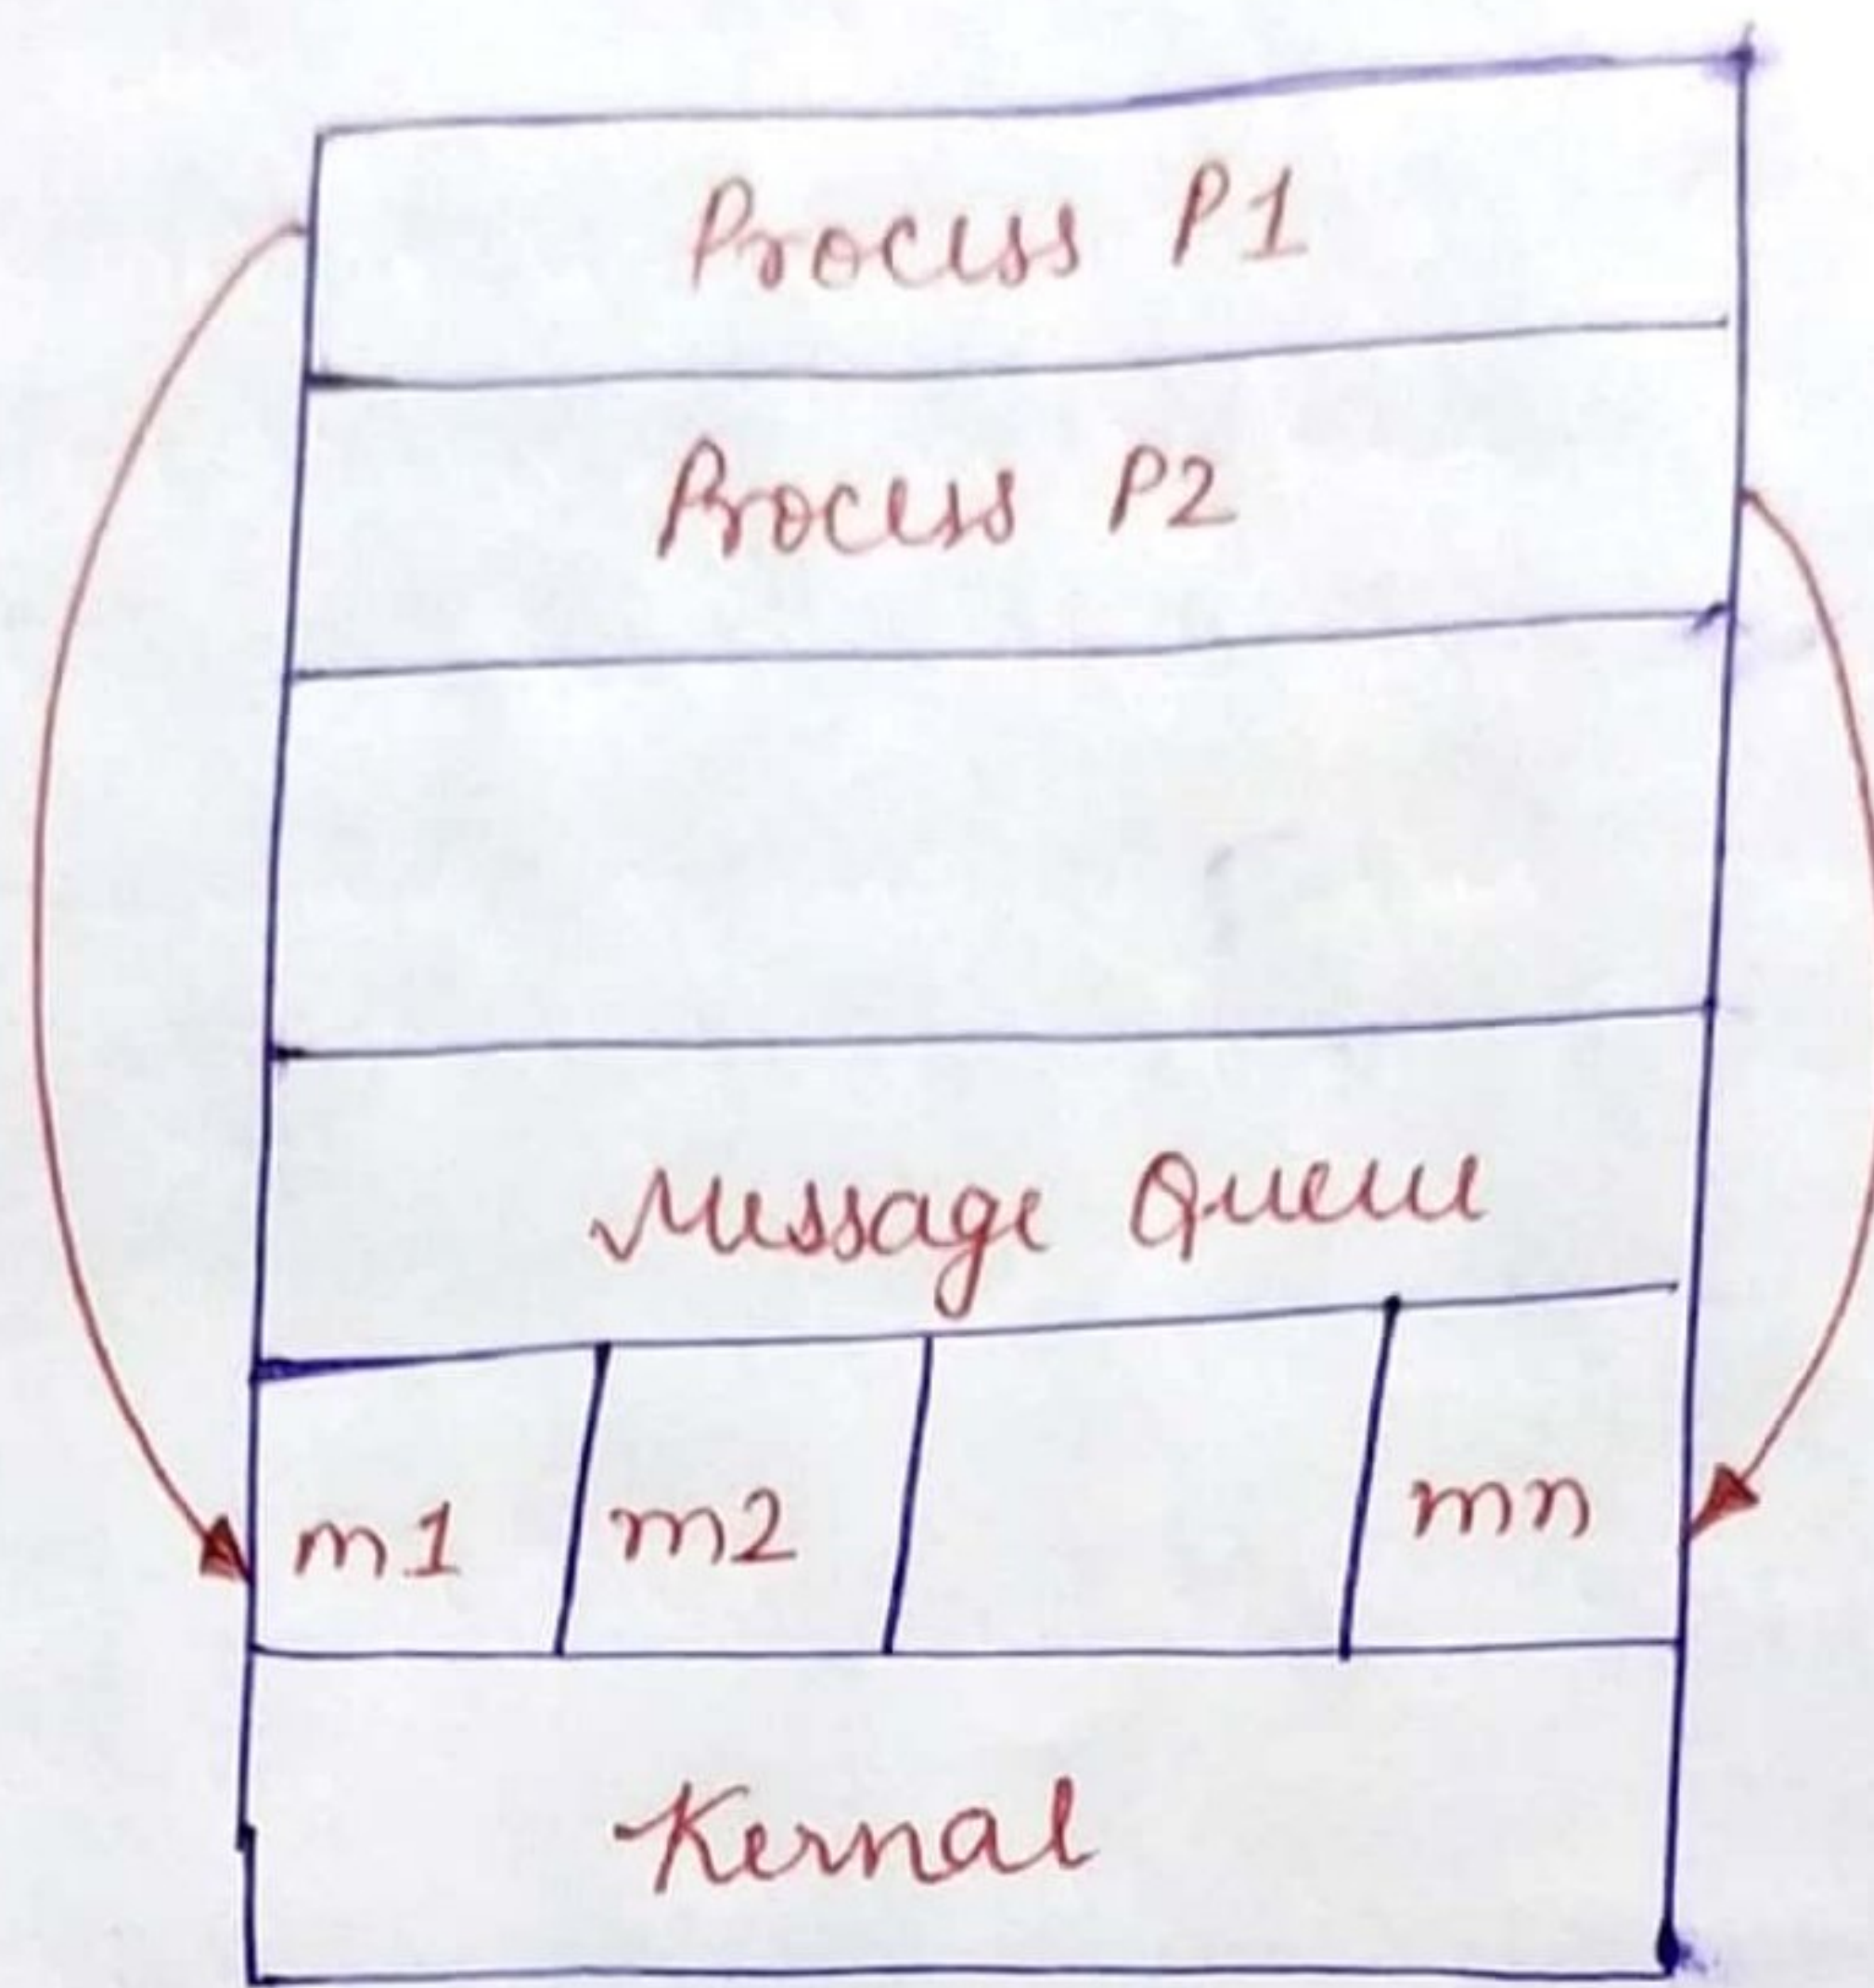 Process P1
Process P2
Message Queue
m1 m2 mn
Kernal